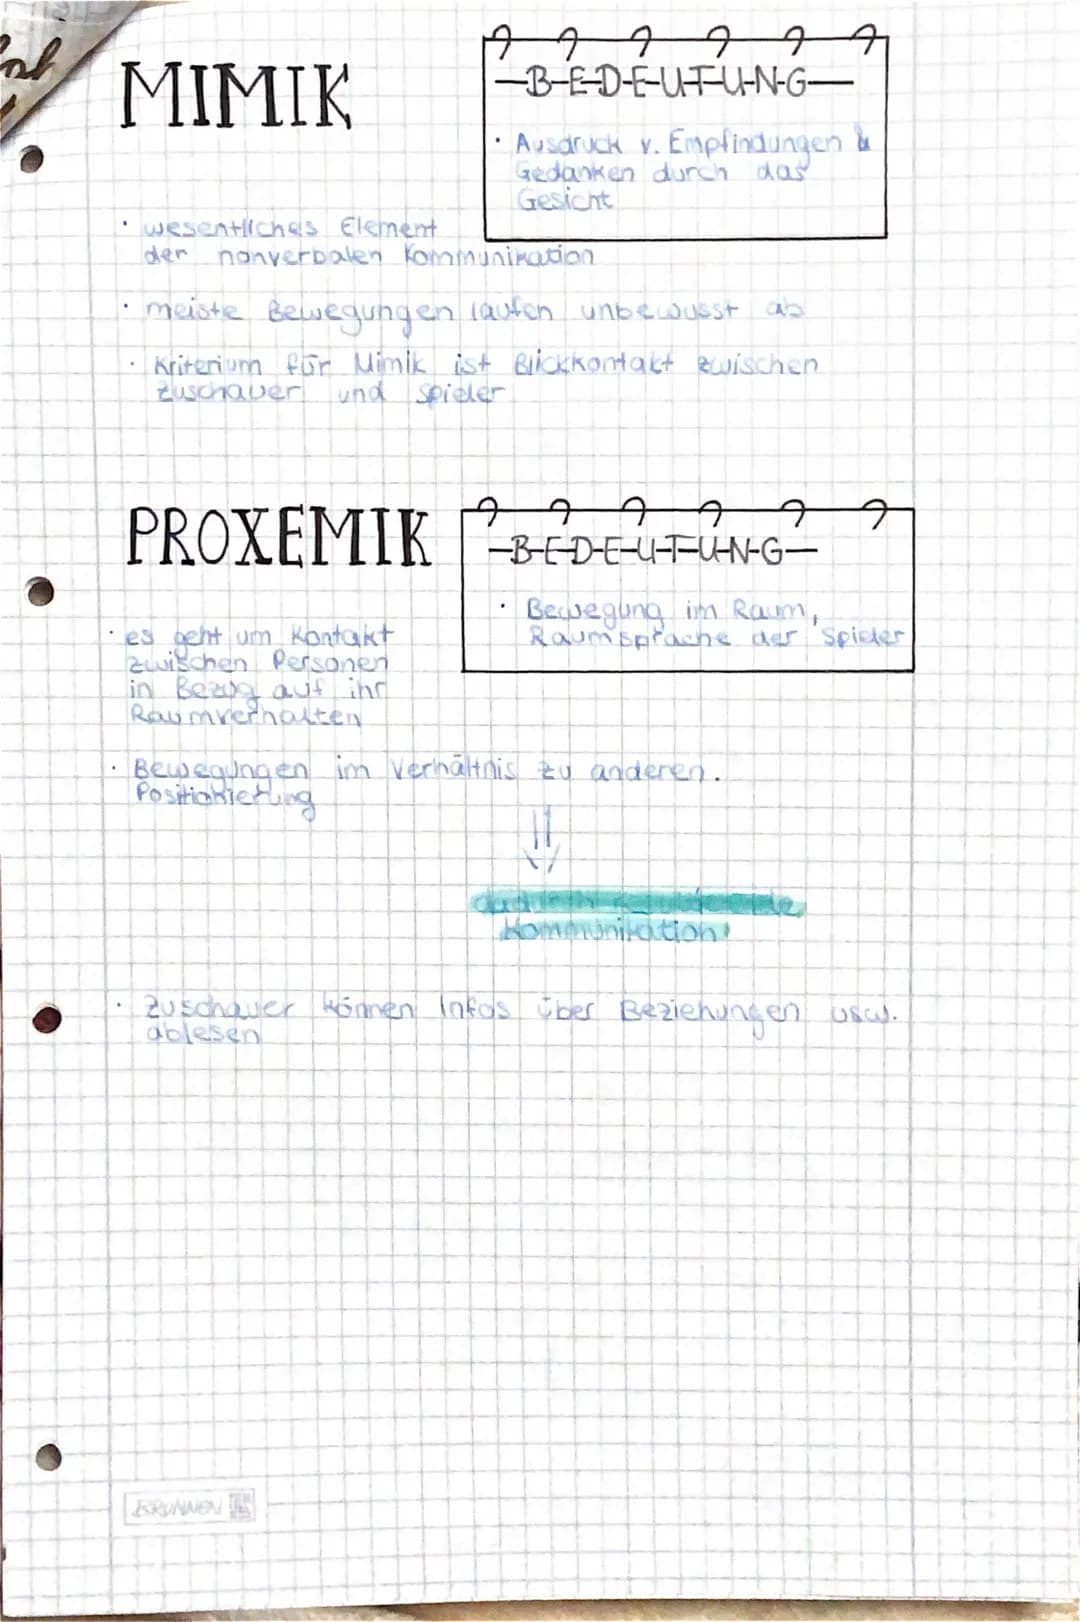 MIMIK
-B-E-D-E-U-T-U-N-G-
· Ausdruck v. Empfindungen &
Gedanken durch das
Gesicht
· wesentliches Element
der nonverbalen Kommunikation
· meiste Bewegungen laufen unbewusst ab
· Kriterium für Mimik ist Blickkontakt zwischen
Zuschauer und Spieler
PROXEMIK
-B-E-D-E-U-T-U-N-G-
· Bewegung im Raum,
Raumsprache der Spieler
· es geht um Kontakt
zwischen Personen
in Bezug auf ihr
Raumverhalten
· Bewegungen im Verhältnis zu anderen.
Positionierung
dadurch
Kommunikation
· Zuschauer können Infos über Beziehungen usw.
ablesen
BRUNNEN